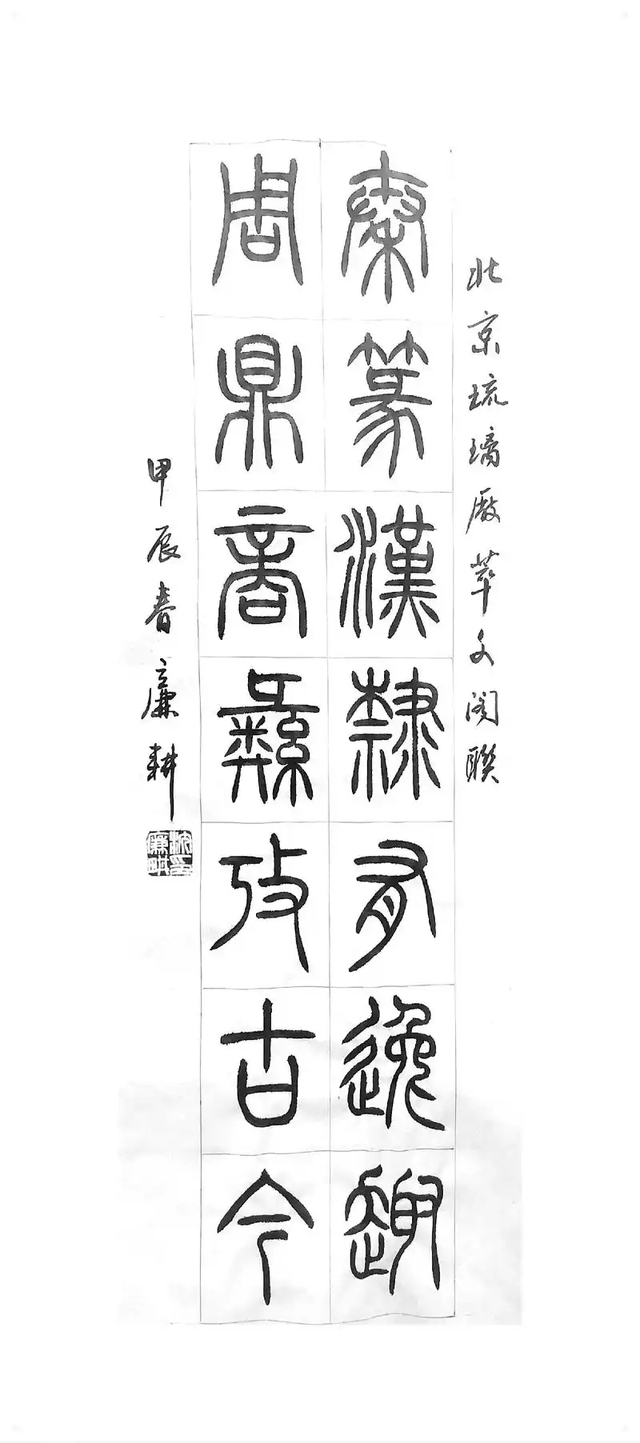 北京琉璃廠萃文阁联
秦篆漢隸有逸趣
周鼎商彝攷古今
甲辰春廉耕